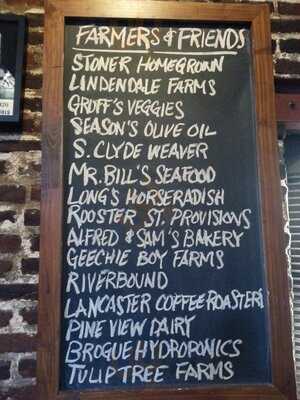 FARMERS & FRIENDS
STONER HOMEGROWN
LINDENDALE FARMS
GROFF'S VEGGIES
SEASON'S OLIVE OIL
S. CLYDE WEAVER
MR. BILL'S SEAFOOD
LONG'S HORSERADISH
ROOSTER ST. PROVISIONS
ALFRED & SAM'S BAKERY
GEECHIE BOY FARMS
RIVERBOUND
LANCASTER COFFEE ROASTERS
PINE VIEW DAIRY
BROGUE HYDROPONICS
TULIPTREE FARMS